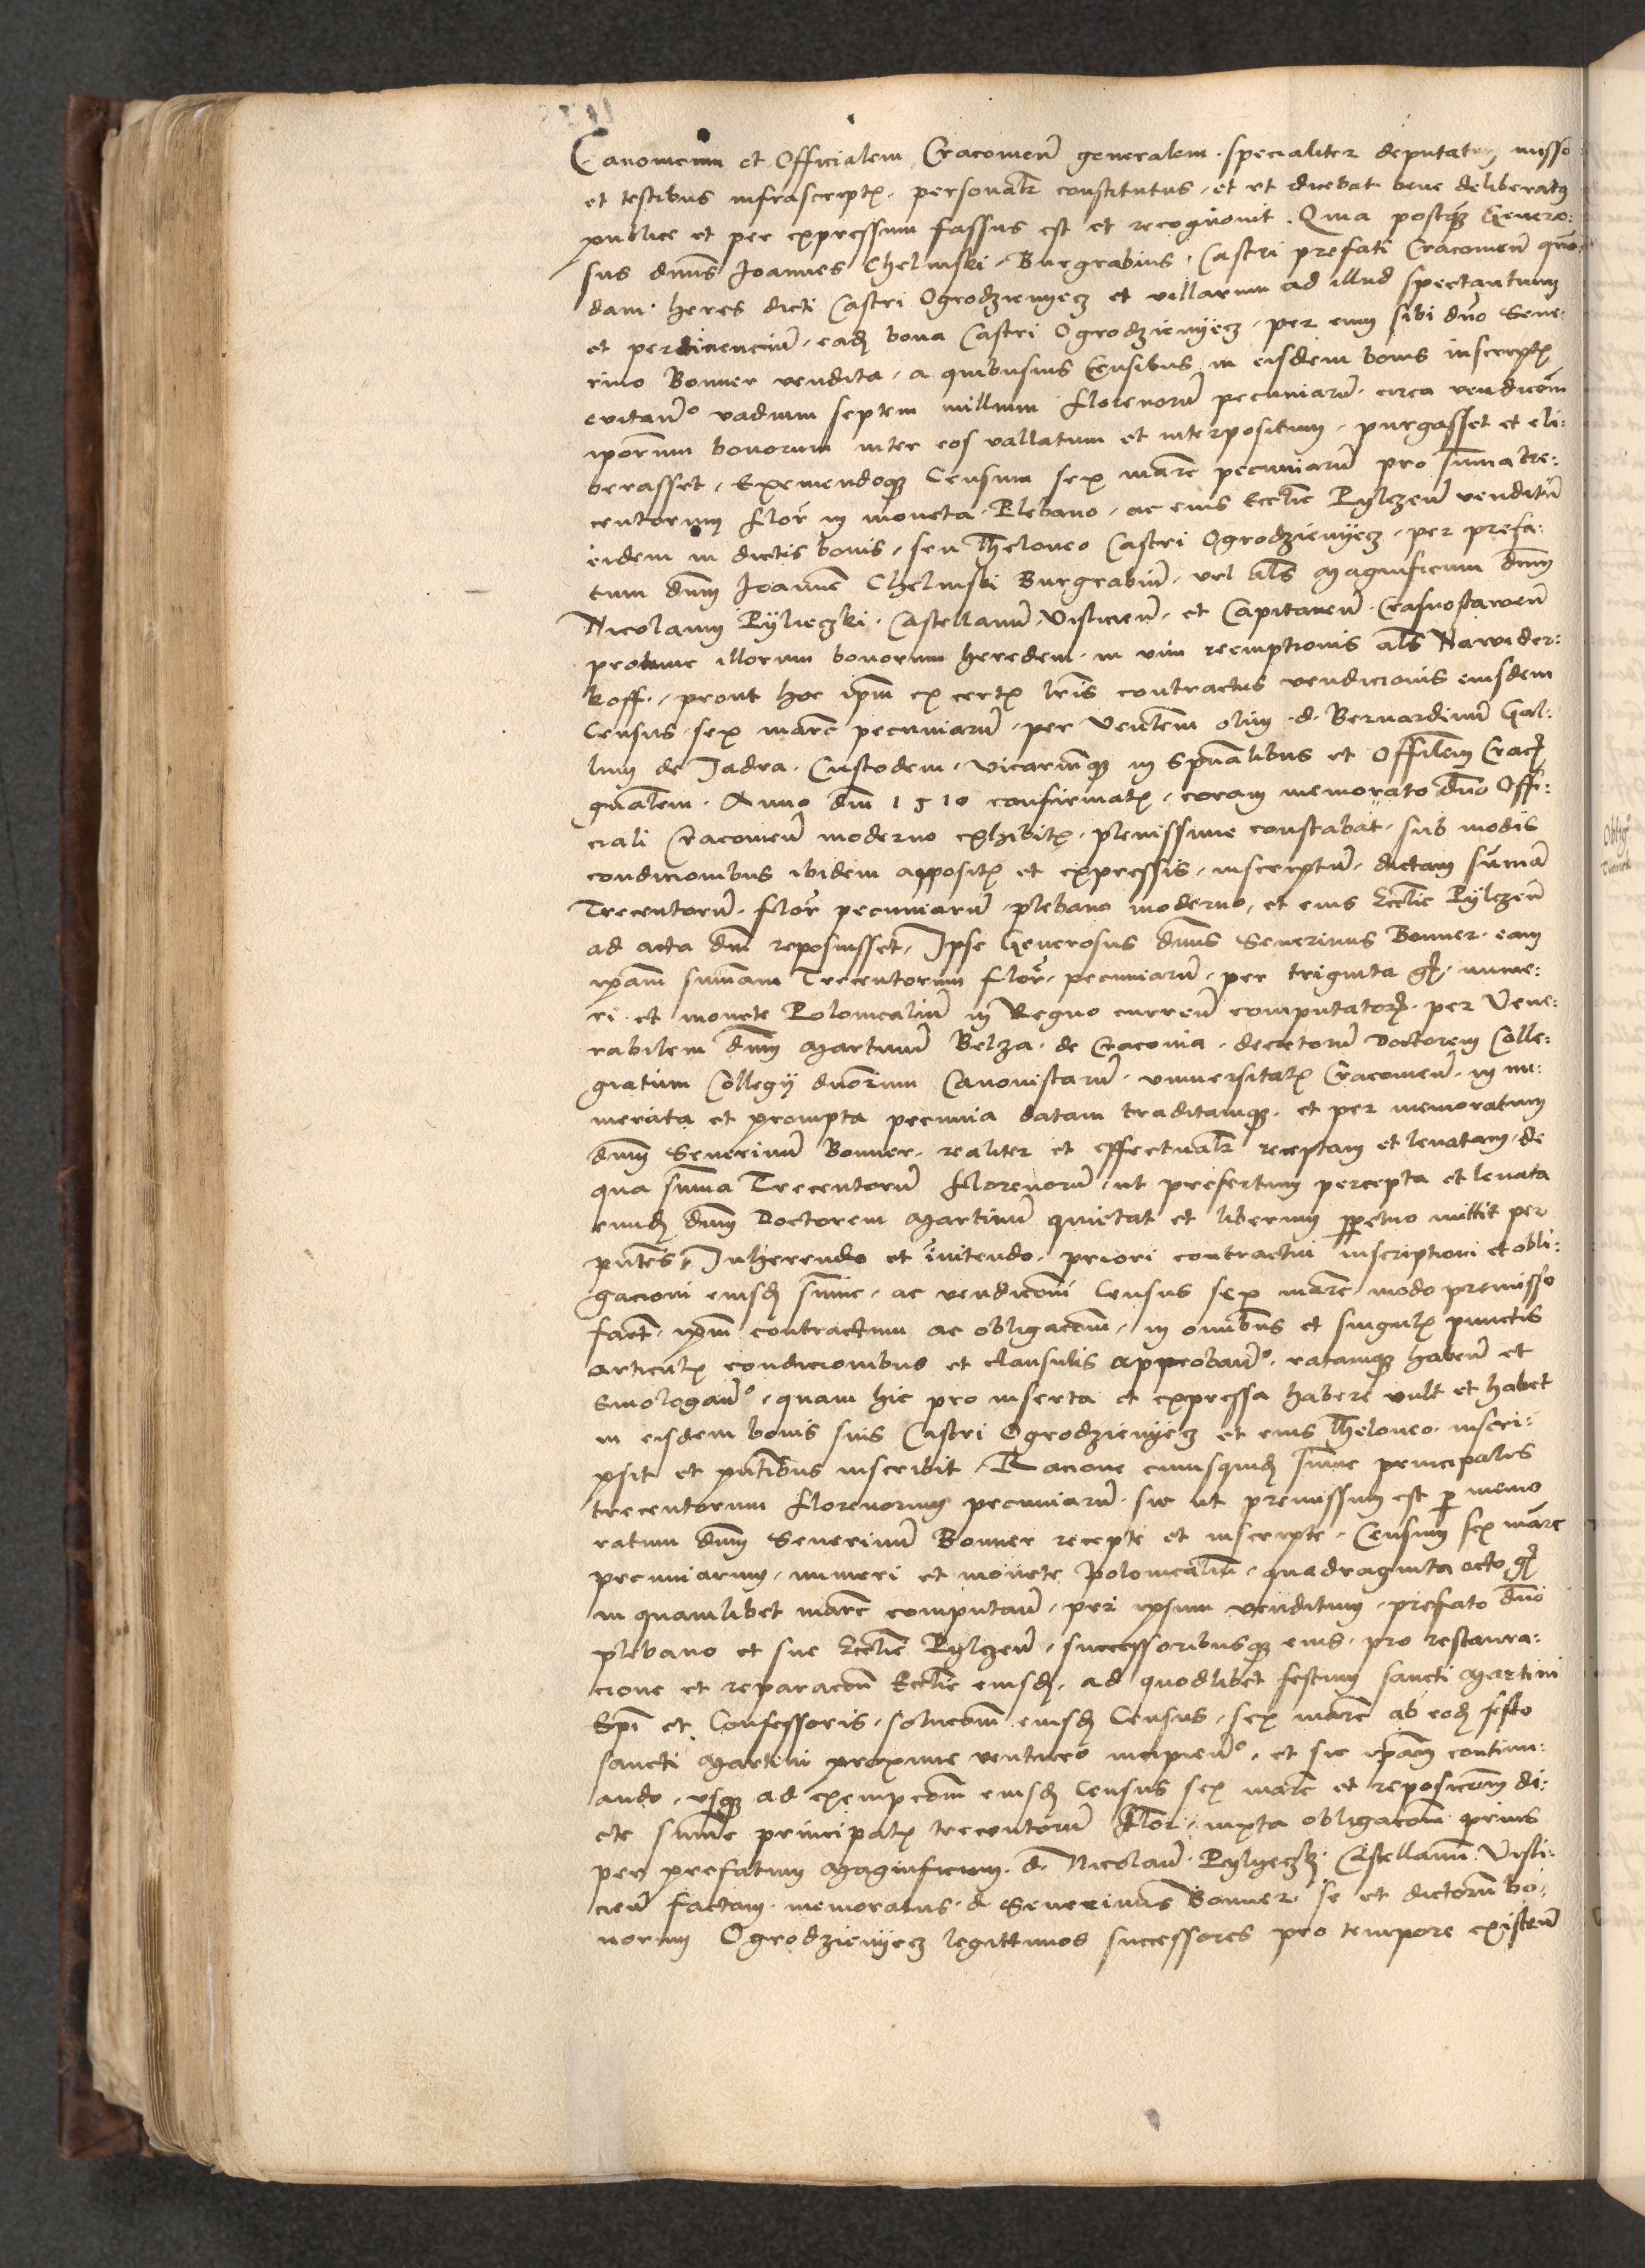 Canonicum et Officialem Cracovien̄ generalem specialiter deputatum misso
et testibus infrascriptꝭ personalr̄ constitutus, et vt dicebat bene deliberatꝰ
publice et per expressum fassus est et recognovit. Quia postqȝ Genero:
sus dn̄us Joannes Chelmski Burgrabius Castri prefati Cracovien̄ quo
dam heres dicti Castri Ogrodzienyecz et villarum ad illud spectantium
et pertinencium, eadȝ bona Castri Ogrodzienyecz, per eum sibi dn̄o Seue:
rino Bonner vendita, a quibusuis Censibus in eisdem bonis inscriptꝭ
euitan̄º vadium septem millium florenorū pecuniarū circa vendicōm
ipōrum bonorum inter eos vallatum et interpositum, purgasset et eli:
berasset, Exemendoqȝ Censum sex marc̄ pecuniarū pro suma tre:
centorum flor̄ in moneta, Plebano, ac eius Ecclīe Pylczen̄ venditū
eidem in dictis bonis, seu Theloneo Castri Ogrodzienyecz, per prefa:
tum dn̄m Joannē Chelmski Burgrabiū, vel als̄ Magnificum dn̄m
Nicolaum Pylieczki Castellanū Visliciēn̄, et Capitaneū Crasnostawien̄
protunc illorum bonorum heredem in vim reemptionis als̄ Nawider:
koff, prout hoc ip̄m ex certꝭ lr̄is contractus vendicionis eiusdem
Census sex marc̄ pecuniarū, per Ven̄lem olim d. Bernardinū Gal:
lum de Jadra Custodem, vicariumqȝ in Spūalibus et Offilem Cracȝ
gn̄alem, Anno dn̄i 1510 confirmatꝭ, coram memorato dn̄o Offi:
ciali Cracovien̄ moderno exhibitꝭ, plenissime constabat, sub modis
condicionibus ibidem appositꝭ et expressis, inscriptum, dictam sumā
Trecentorū flor̄ pecuniarū plebano moderno, et eius Ecclīe Pylczen̄
ad acta dn̄i reposuisset, Ipse Generosus dn̄us Seuerinus Bonner eam
ip̄am sum̄am Trecentorum flor̄ pecuniarū, per triginta gȝ, nume:
ri et monete Polonicaliū in Regno curren̄ computatorȝ, per Vene:
rabilem dn̄m Martinū Belza de Cracovia, decretorū doctorem Colle:
giatum Collegij dnōrum Canonistarū vniuersitatꝭ Cracovien̄, in nu:
merata et prompta pecunia datam traditamqȝ, et per memoratum
dn̄m Seuerinū Bonner, realiter et effectualr̄ receptam et leuatam, de
qua sum̄a Trecentorū florenorū, ut prefertum percepta et leuata
eundȝ dn̄m Doctorem Martinū quietat et liberum perpetuo mittit per
pn̄tes, Inherendo et initendo priori contractui inscriptioni et obli:
gacioni eiusdȝ sum̄e, ac vendicōni Census sex marc̄ modo premisso
fact̄, ip̄m contractum ac obligacōm, in omībus et singulꝭ punctis
articulꝭ condicionibus et clausulis approban̄º, ratamqȝ haben̄ et
Emologan̄º, quam hic pro inserta et expressa habere vult et habet
in eisdem bonis suis Castri Ogrodzienyecz et eius Theloneo inscri:
psit et pn̄tibus inscribit, Racione cuiusquidȝ sum̄e principalis
trecentorum florenorum pecuniarū sic ut premissum est per memo
ratum dn̄m Seuerinū Bonner recepte et inscripte, Censum sex marc̄
pecuniarum, numeri et monete Polonicaliū, quadraginta octo gȝ
in quamlibet marc̄ computan̄, per ipsum venditum, prefato dn̄o
plebano et sue Ecclīe Pylczen̄, successoribusqȝ eius, pro restaura:
cione et reparacōn̄ Ecclīe eiusdȝ, ad quodlibet festum Sancti Martini
Ep̄i et Confessoris, solucōm eiusdȝ Census, sex marc̄ ab eodȝ festo
sancti Martini proxime venturo incipien̄º, et sic ip̄am continu:
ando, vsqȝ ad exempcōm eiusdȝ Census sex marc̄ et reposicōm di:
cte sum̄e principalꝭ trecentorū flor̄, iuxta obligacōm prius
per prefatum Magnificum d. Nicolaū Pylyeczkȝ Castellanū Visli:
cien̄ factam, memoratus d. Seuerinus Bonner, se et dictorū bo:
norum Ogrodzienyecz legittimos successores pro tempore existen̄